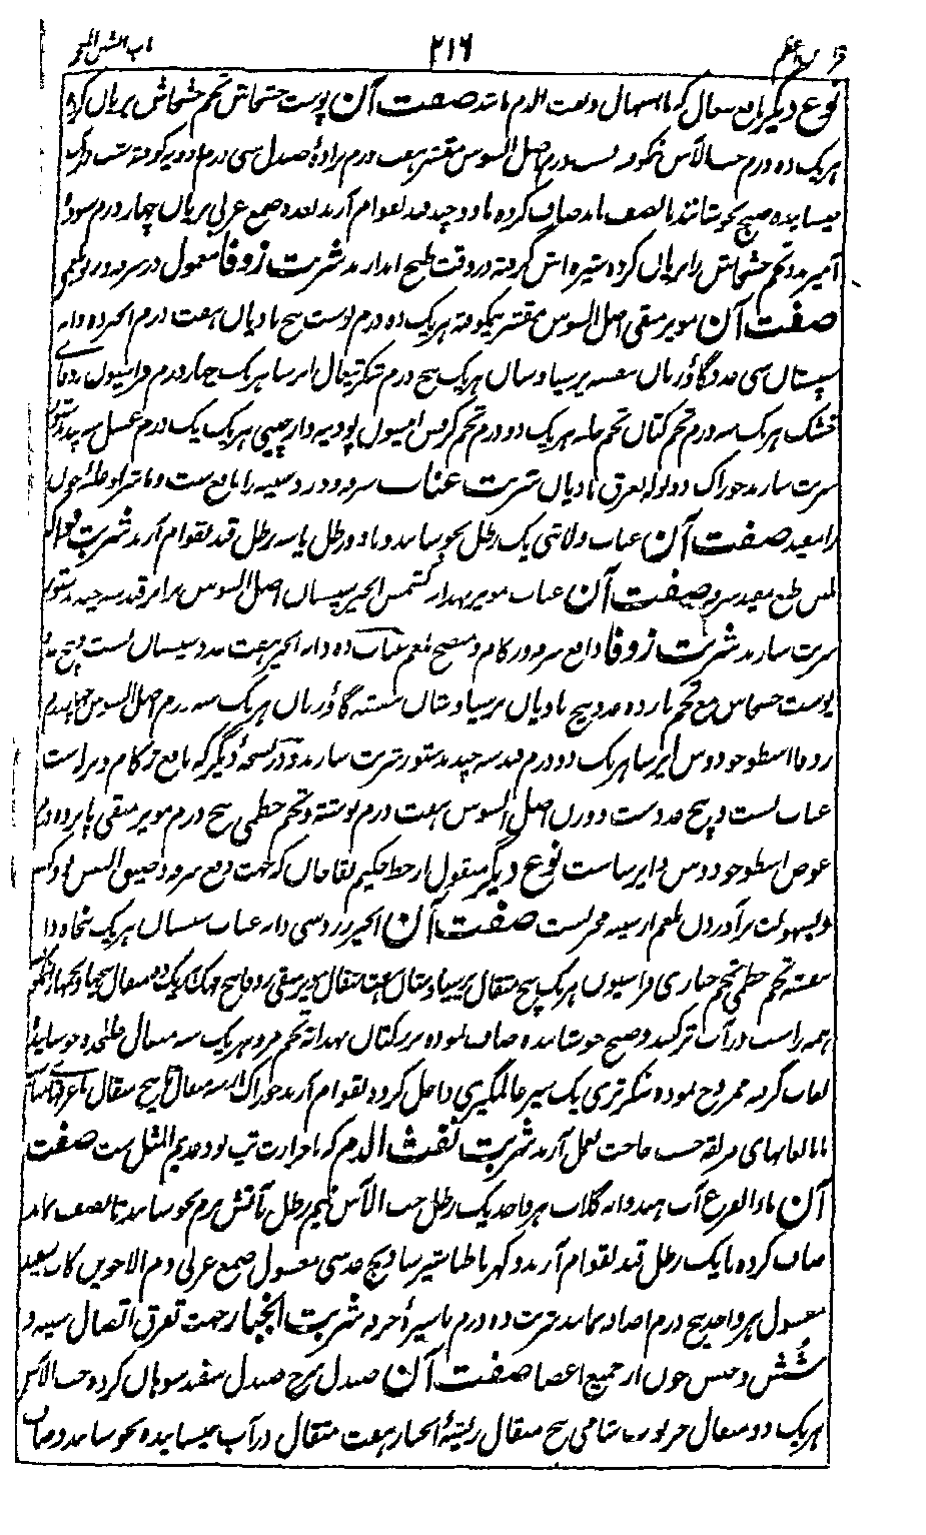 باب الشین المعجمہ ۲۱۶
نوع دیگر نافع سعال که با اسهال و نفث الدم باشد صفت آن پوست خشخاش تخم خشخاش بریان کرده
هر یک ده درم حب الآس نیکوفته بست درم اصل السوس مقشر هفت درم برادهٔ صندل سی درم ادویه کوفته شب در آب
خیسانیده صبح بجوشانند تا نصف ماند صاف کرده با دو چند قند بقوام آرند بعده صمغ عربی بریان چهار درم سوده
آمیزند و تخم خشخاش را بریان کرده شیره اش گرفته در وقت طبخ اندازند شربت زوفا معمول در سرفه و ربو بلغمی
صفت آن مویز منقی اصل السوس مقشر نیکوفته هر یک ده درم پوست بیخ بادیان هفت درم انجیر ده دانه
سپستان سی عدد گاؤزبان بنفشه پرسیاوشان هر یک پنج درم شکر تیغال ایرسا هر یک چهار درم فراسیون زوفای
خشک هر یک سه درم تخم کتان تخم حلبه هر یک دو درم تخم کرفس انیسون پودینه دارچینی هر یک یک درم عسل سه چند بدستور
شربت سازند خوراک دو توله بعرق بادیان شربت عناب سرفه و درد سینه را نافع ست و
را مفید صفت آن عناب ولایتی یک رطل بجوشانند و با دو رطل یا سه رطل قند بقوام آرند شربت فواکه
ملین طبع مفید سرفه صفت آن عناب مویز بهدانه کشمش انجیر سپستان اصل السوس برابر قند سه چند بدستور
شربت سازند شربت زوفا دافع سرفه و زکام و منضج بلغم عناب ده دانه انجیر هفت عدد سپستان بست و پنج عدد
پوست خشخاش مع تخم یازده عدد بیخ بادیان پرسیاوشان بنفشه گاؤزبان هر یک سه درم اصل السوس
زوفا اسطوخودوس ایرسا هر یک دو درم قند سه چند بدستور شربت سازند و در نسخهٔ دیگر که نافع زکام و سر است
عناب بست و پنج عدد ست و وزن اصل السوس هفت درم نوشته و تخم خطمی پنج درم مویز منقی پانزده درم
عوض اسطوخودوس و ایرسا ست نوع دیگر منقول از خط حکیم بقا خان که جهت دفع سرفه و ضیق النفس
و بسهولت برآوردن بلغم از سینه مجربست صفت آن انجیر زرد سی دانه عناب سپستان هر یک پنجاه دانه
بنفشه تخم خطمی تخم خبازی فراسیون هر یک پنج مثقال پرسیاوشان هفت مثقال مویز منقی
همه را شب در آب تر کنند و صبح جوشانده صاف نموده بزر کتان بهدانه تخم مرو هر یک سه مثقال علیحده جوشانیده
لعاب گرفته ممزوج نموده شکر تری یک سیر عالمگیری داخل کرده بقوام آرند خوراک از سه مثقال تا پنج مثقال
با لعابهای مزلقه حسب حاجت بعمل آرند شربت نفث الدم که با حرارت تب بود عدیم المثل ست صفت
آن ماء القرع آب هندوانه گلاب هر واحد یک رطل حب الآس نیم رطل بآتش نرم بجوشانند تا نصف بماند
صاف کرده با یک رطل قند بقوام آرند و کهربا طباشیر ساذج عدسی مغسول صمغ عربی دم الاخوین
مغسول هر واحد پنج درم اضافه نمایند شربت ده درم با شیرهٔ خرفه شربت انجبار جهت تفرق اتصال سینه و
شُش و حبس خون از جمیع اعضا صفت آن صندل سرخ صندل سفید سوهان کرده حب الآس
هر یک دو مثقال خرنوب شامی پنج مثقال ریشهٔ انجبار هفت مثقال در آب خیسانیده بجوشانند و صاف